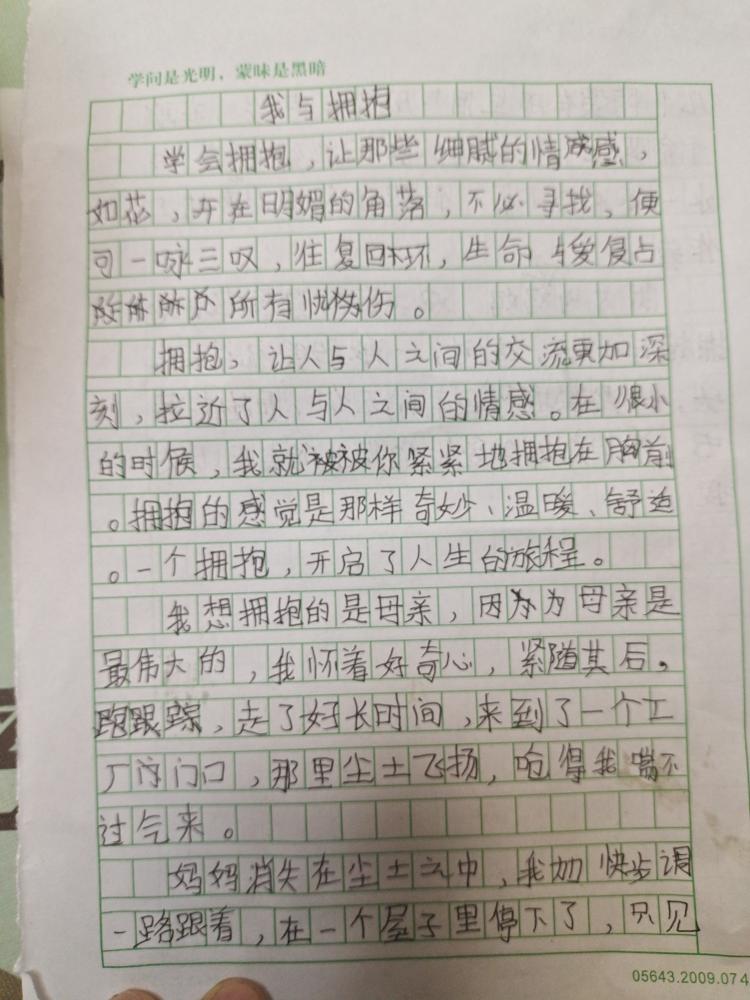 学问是光明，蒙昧是黑暗
我与拥抱
学会拥抱，让那些细腻的情感，
如花，开在明媚的角落，不必寻找，便
可一咏三叹，往复回环，生命与爱侵占
所有忧伤。
拥抱，让人与人之间的交流更加深
刻，拉近了人与人之间的情感。在很小
的时候，我就被被你紧紧地拥抱在胸前
。拥抱的感觉是那样奇妙、温暖、舒适
。一个拥抱，开启了人生的旅程。
我想拥抱的是母亲，因为为母亲是
最伟大的，我怀着好奇心，紧随其后，
跑跟踪，走了好长时间，来到了一个工
厂门门口，那里尘土飞扬，呛得我喘不
过气来。
妈妈消失在尘土之中，我加快步调
一路跟着，在一个屋子里停下了，只见
05643.2009.074